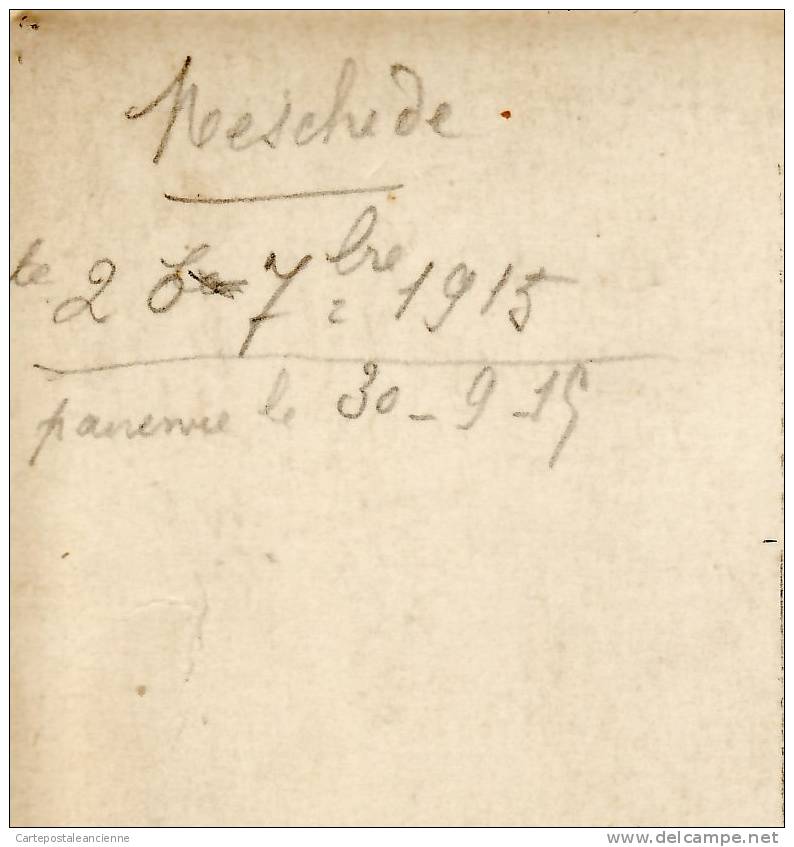 Meschede
le 2 6 7bre 1915
parvenue le 30 - 9 - 15
Cartepostaleancienne
www.delcampe.net